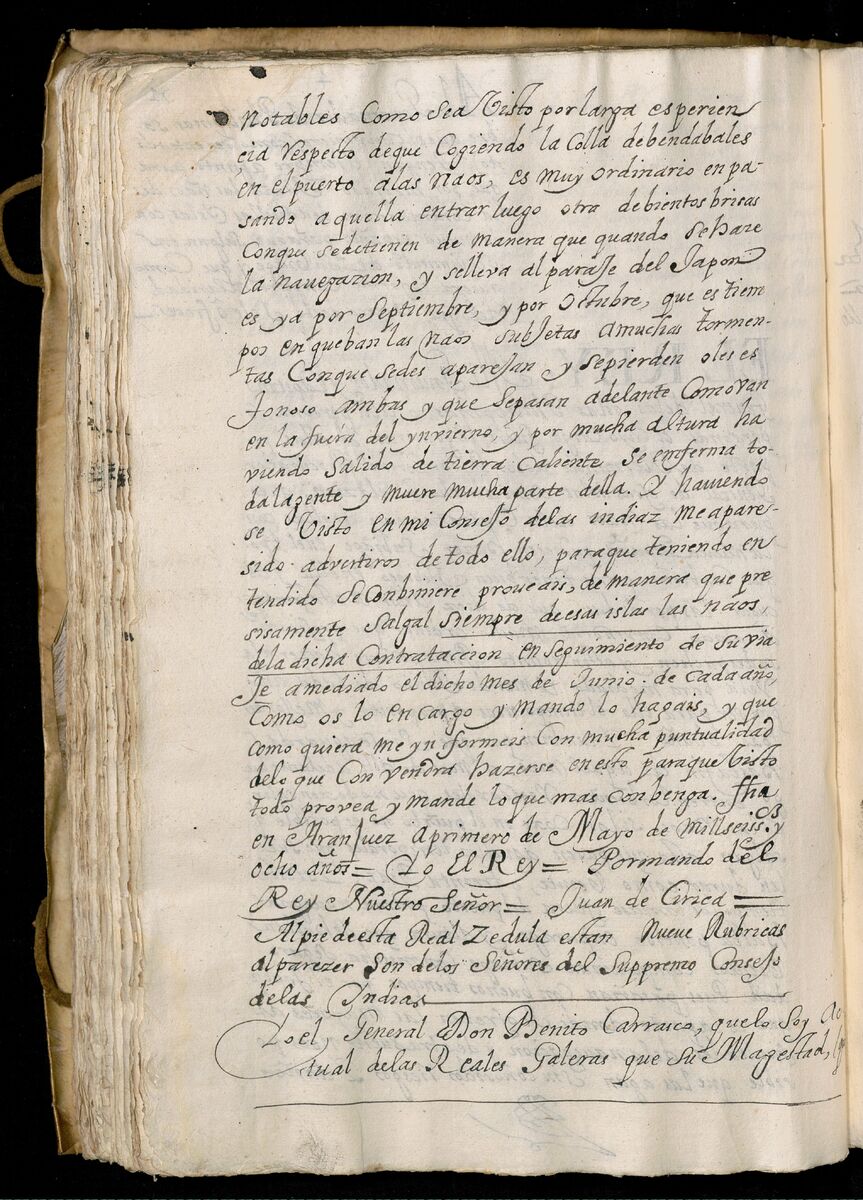 notables Como sea Visto por larga esperien
çia Respecto de que Cogiendo la Colla de bendabales
en el puerto alas naos, es muy ordinario en pa-
sando aquella entrar luego otra de bientos brisas
Conque se detienen de manera que quando se haze
la navegazion, y selleva al paraje del Japon
es ya por Septiembre, y por Octubre, que es tiem
pos en queban las naos subjetas a muchas tormen-
tas Conque sedes aparejan y sepierden oles es
fonoso ambas y que sepasan adelante Como van
en la fuera del ynvierno, y por mucha altura ha
viendo salido de tierra caliente se emferma to-
da lagente y muere mucha parte della. Y haviendo
se Visto en mi Consejo delas indiaz me apare-
sido advertiros de todo ello, para que teniendo en
tendido se conbiniere proveais, de manera que pre
sisamente salgal siempre de esas islas las naos,
dela dicha Contrataccion en seguimiento de su via
Je a mediado el dicho mes de Junio de cada año,
Como os lo en cargo y mando lo hagais, y que
como quiera me yn formeis Con mucha puntualidad
delo que Con vendra hazerse en esto para que Visto
todo provea y mande lo que mas conbenga. ffha
en Aranjuez a primero de Mayo de mill seiss.os y
ocho años = Yo El Rey = Por mando del
Rey Nuestro Señor = Juan de Cirica =
Al pie de esta Real Zedula estan Nueve Rubricas
al parezer son delos Señores del Suppremo Consejo
delas Indias
Yo el, General Don Benito Carrasco, que lo soy Ac-
tual delas Reales Galeras que Su Magestad,